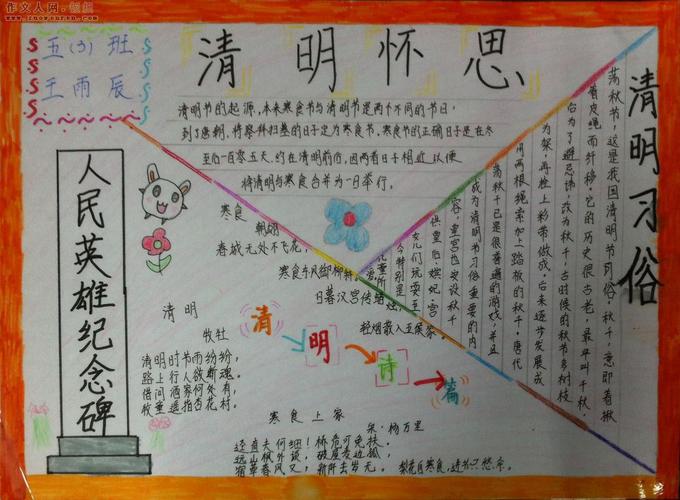 作文人网·板报
www.znowenren.com
五(3)班
王雨辰
清明怀思
清明节的起源,本来寒食节与清明节是两个不同的节日,
到了唐朝,将祭拜扫墓的日子定为寒食节。寒食节的正确日子是在冬
至后一百零五天,约在清明前后,因两者日子相近,以便
将清明与寒食合并为一日举行。
人民英雄纪念碑
寒食
朝翃
春城无处不飞花,
寒食东风御柳斜。
日暮汉宫传蜡烛,
轻烟散入五侯家。
清明
牧牡
清明时节雨纷纷,
路上行人欲断魂。
借问酒家何处有,
牧童遥指杏花村。
清
明
诗
篇
寒食上冢
宋·杨万里
迳直夫何细!桥危可免扶。
远山枫外淡,破屋麦边孤。
宿草春风又,新阡去岁无。
梨花自寒食,
清明习俗
荡秋节,这是我国清明节习俗。秋千,意即着揪
着皮绳而纤移。它的历史很古老,最早叫千秋,
后为了避忌讳,改为秋千。古时候的秋节多树枝
为架,再栓上彩带做成。后来逐步发展成
用两根绳索加上踏板的秋千。唐代
荡秋千已是很普遍的游戏,并且
成为清明节习俗重要的内
容,皇宫也安设秋千
供皇后、嫔妃、宫
女儿们玩耍至
今特别是
儿童所
爱